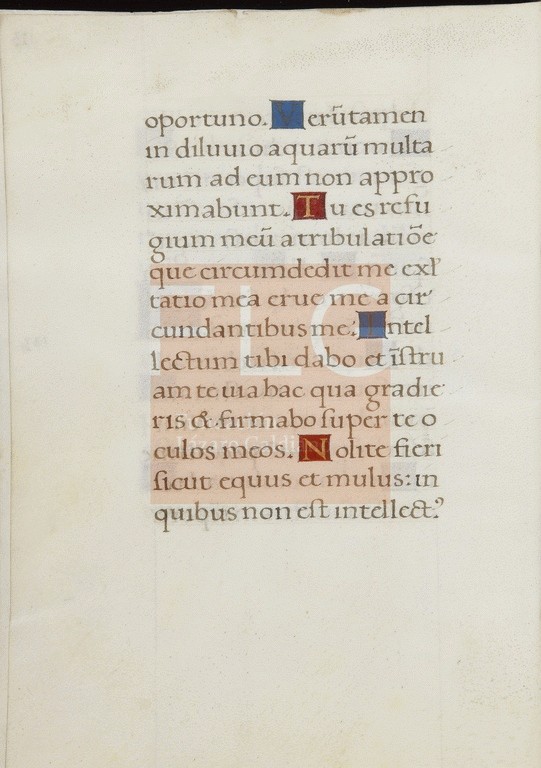 oportuno. Verũtamen
in diluuio aquarũ multa
rum ad eum non appro
ximabunt. Tu es refu
gium meũ a tribulatiõe
que circumdedit me exl'
tatio mea erue me a cir
cundantibus me. Intel
lectum tibi dabo et ĩſtru
am te uia hac qua gradie
ris & firmabo ſuper te o
culos meos. Nolite fieri
ſicut equus et mulus: in
quibus non eſt intellect⁹
TLC